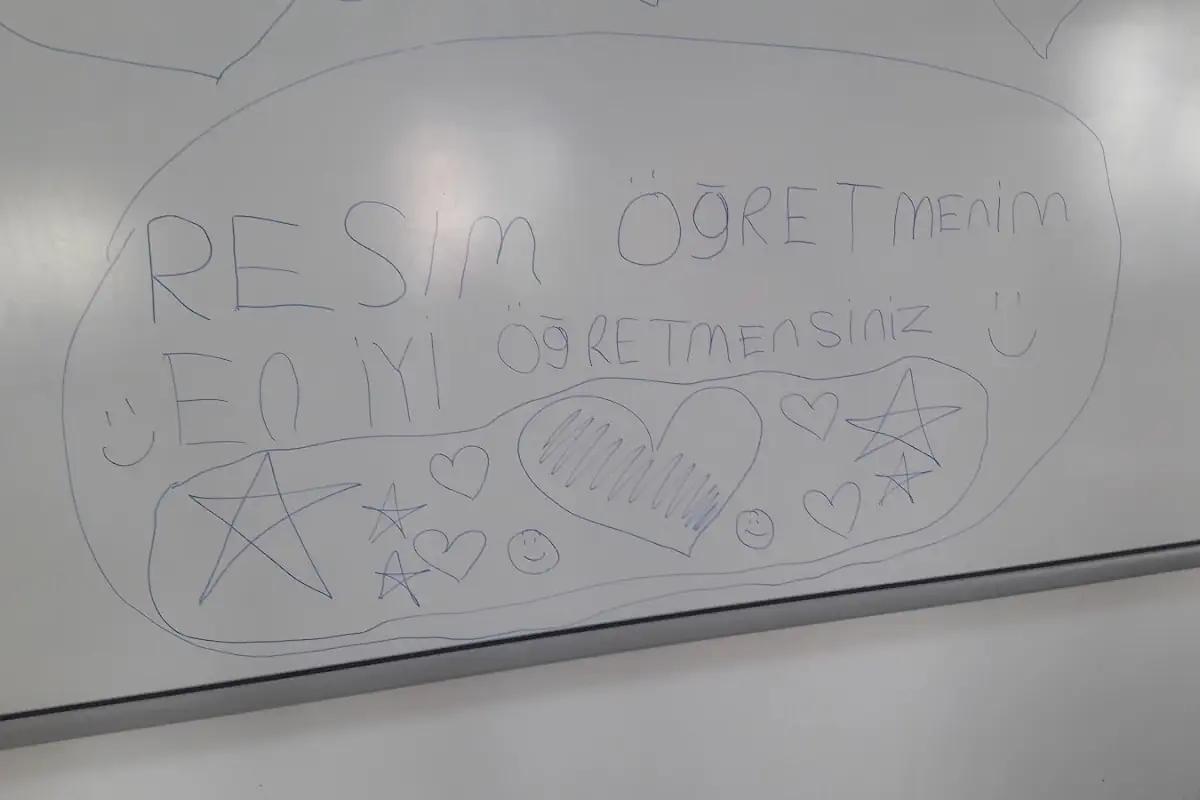 RESİM ÖĞRETMENİM
EN İYİ ÖĞRETMENSİNİZ